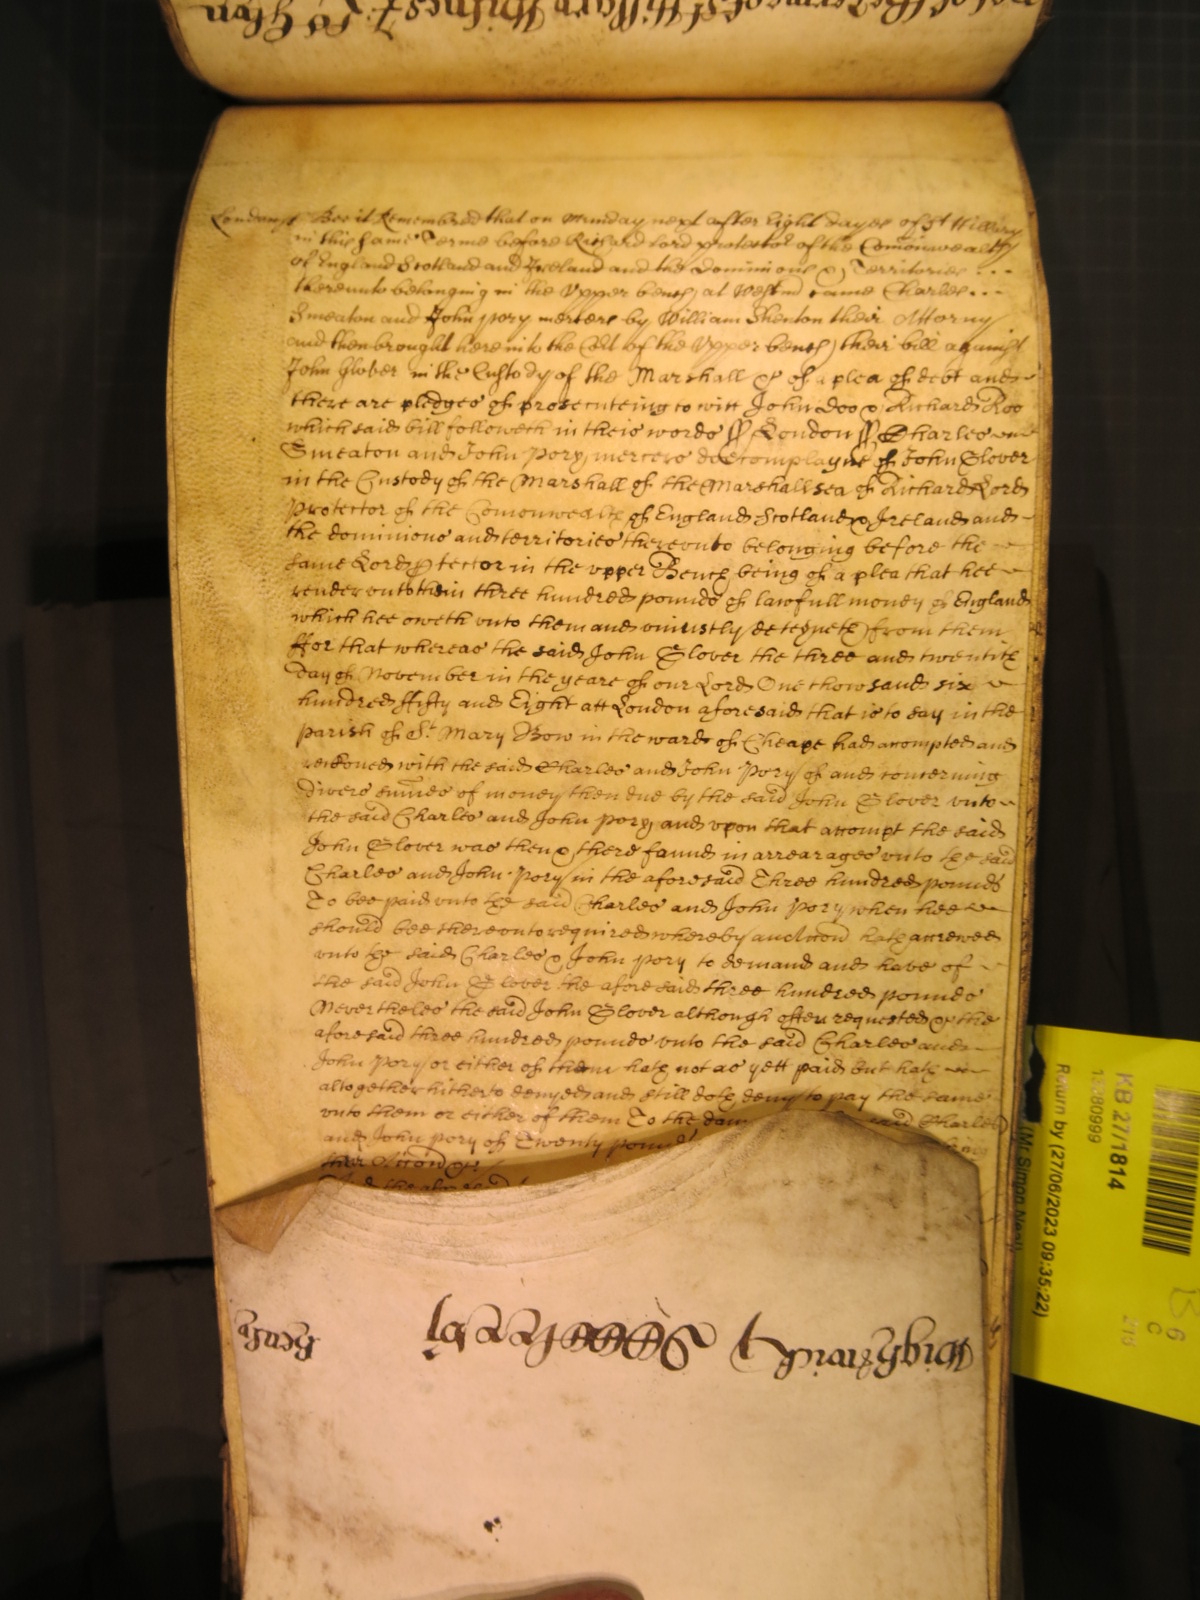 London ss Bee it Remembred that on Munday next after Eight dayes of St Hillary
in this same Terme before Richard Lord protector of the Comonwealth
of England Scotland and Ireland and the Dominions & Territories
thereunto belonging in the Upper bench at Westmr came Charles
Smeaton and John Pory mercers by William Shenton their Attorny
and then brought here into the Co̅rt of the Upper bench their bill against
John Glover in the Custody of the Marshall &c of a plea of debt and
there are pledges of prosecuteing to witt John Doo & Richard Roo
which said bill followeth in theis words ss London ss Charles
Smeaton and John Pory mercers doe complayne of John Glover
in the Custody of the Marshall of the Marshallsea of Richard Lord
Protector of the Comonwealth of England Scotland & Ireland and
the dominions and territories thereunto belonging before the
same Lord Protector in the upper Bench being of a plea that hee
render unto them three hundred pounds of lawfull money of England
which hee oweth unto them and uniustly deteyneth from them
ffor that whereas the said John Glover the three and twentith
day of November in the yeare of our Lord One thowsand six
hundred ffifty and Eight att London aforesaid that is to say in the
parish of St Mary Bow in the ward of Cheape had accompted and
reckoned with the said Charles and John Pory of and concerning
divers sumes of money then due by the said John Glover unto
the said Charles and John Pory and upon that accompt the said
John Glover was then & there found in arrearages unto the said
Charles and John Pory in the aforesaid Three hundred pounds
To bee paid unto the said Charles and John Pory when hee
should bee thereunto required whereby an action hath accrewed
unto the said Charles & John Pory to demand and have of
the said John Glover the aforesaid three hundred pounds
Neverthelesse the said John Glover although often requested &c the
aforesaid three hundred pounds unto the said Charles and
John Pory or either of them hath not as yett paid but hath
altogether hitherto denyed and still doth deny to pay the same
unto them or either of them To the dam said Charles
and John Pory of Twenty pounds
their
Wightwick
Henly
KB 27/1814
13380999
Return by (27/06/2023 09:35:22)
(Mr Simon Neal)
B 6
C
215